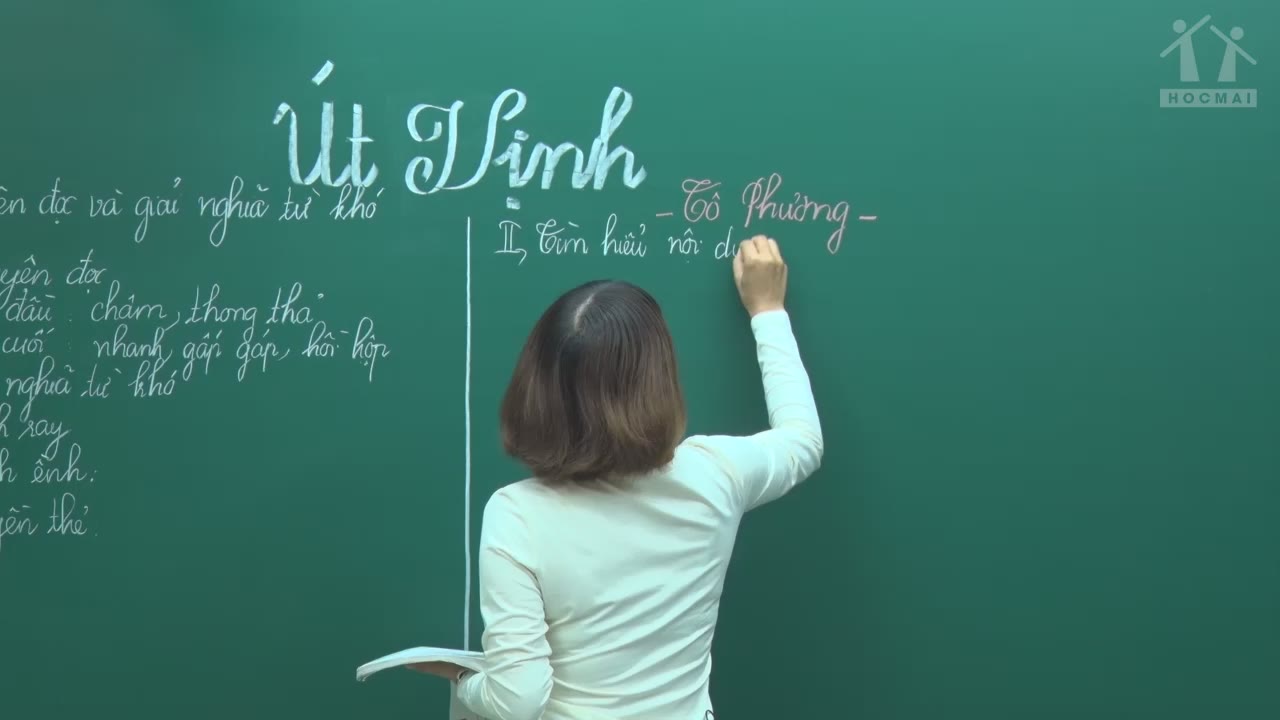 Út Tịnh
- Tô Phương -
ên đọc và giải nghĩa từ khó
yện đọc
đầu : chậm, thong thả
cuối : nhanh, gấp gáp, hồi hộp
nghĩa từ khó
h ray
h ềnh:
yền thẻ:
II, Tìm hiểu nội du
HOCMAI